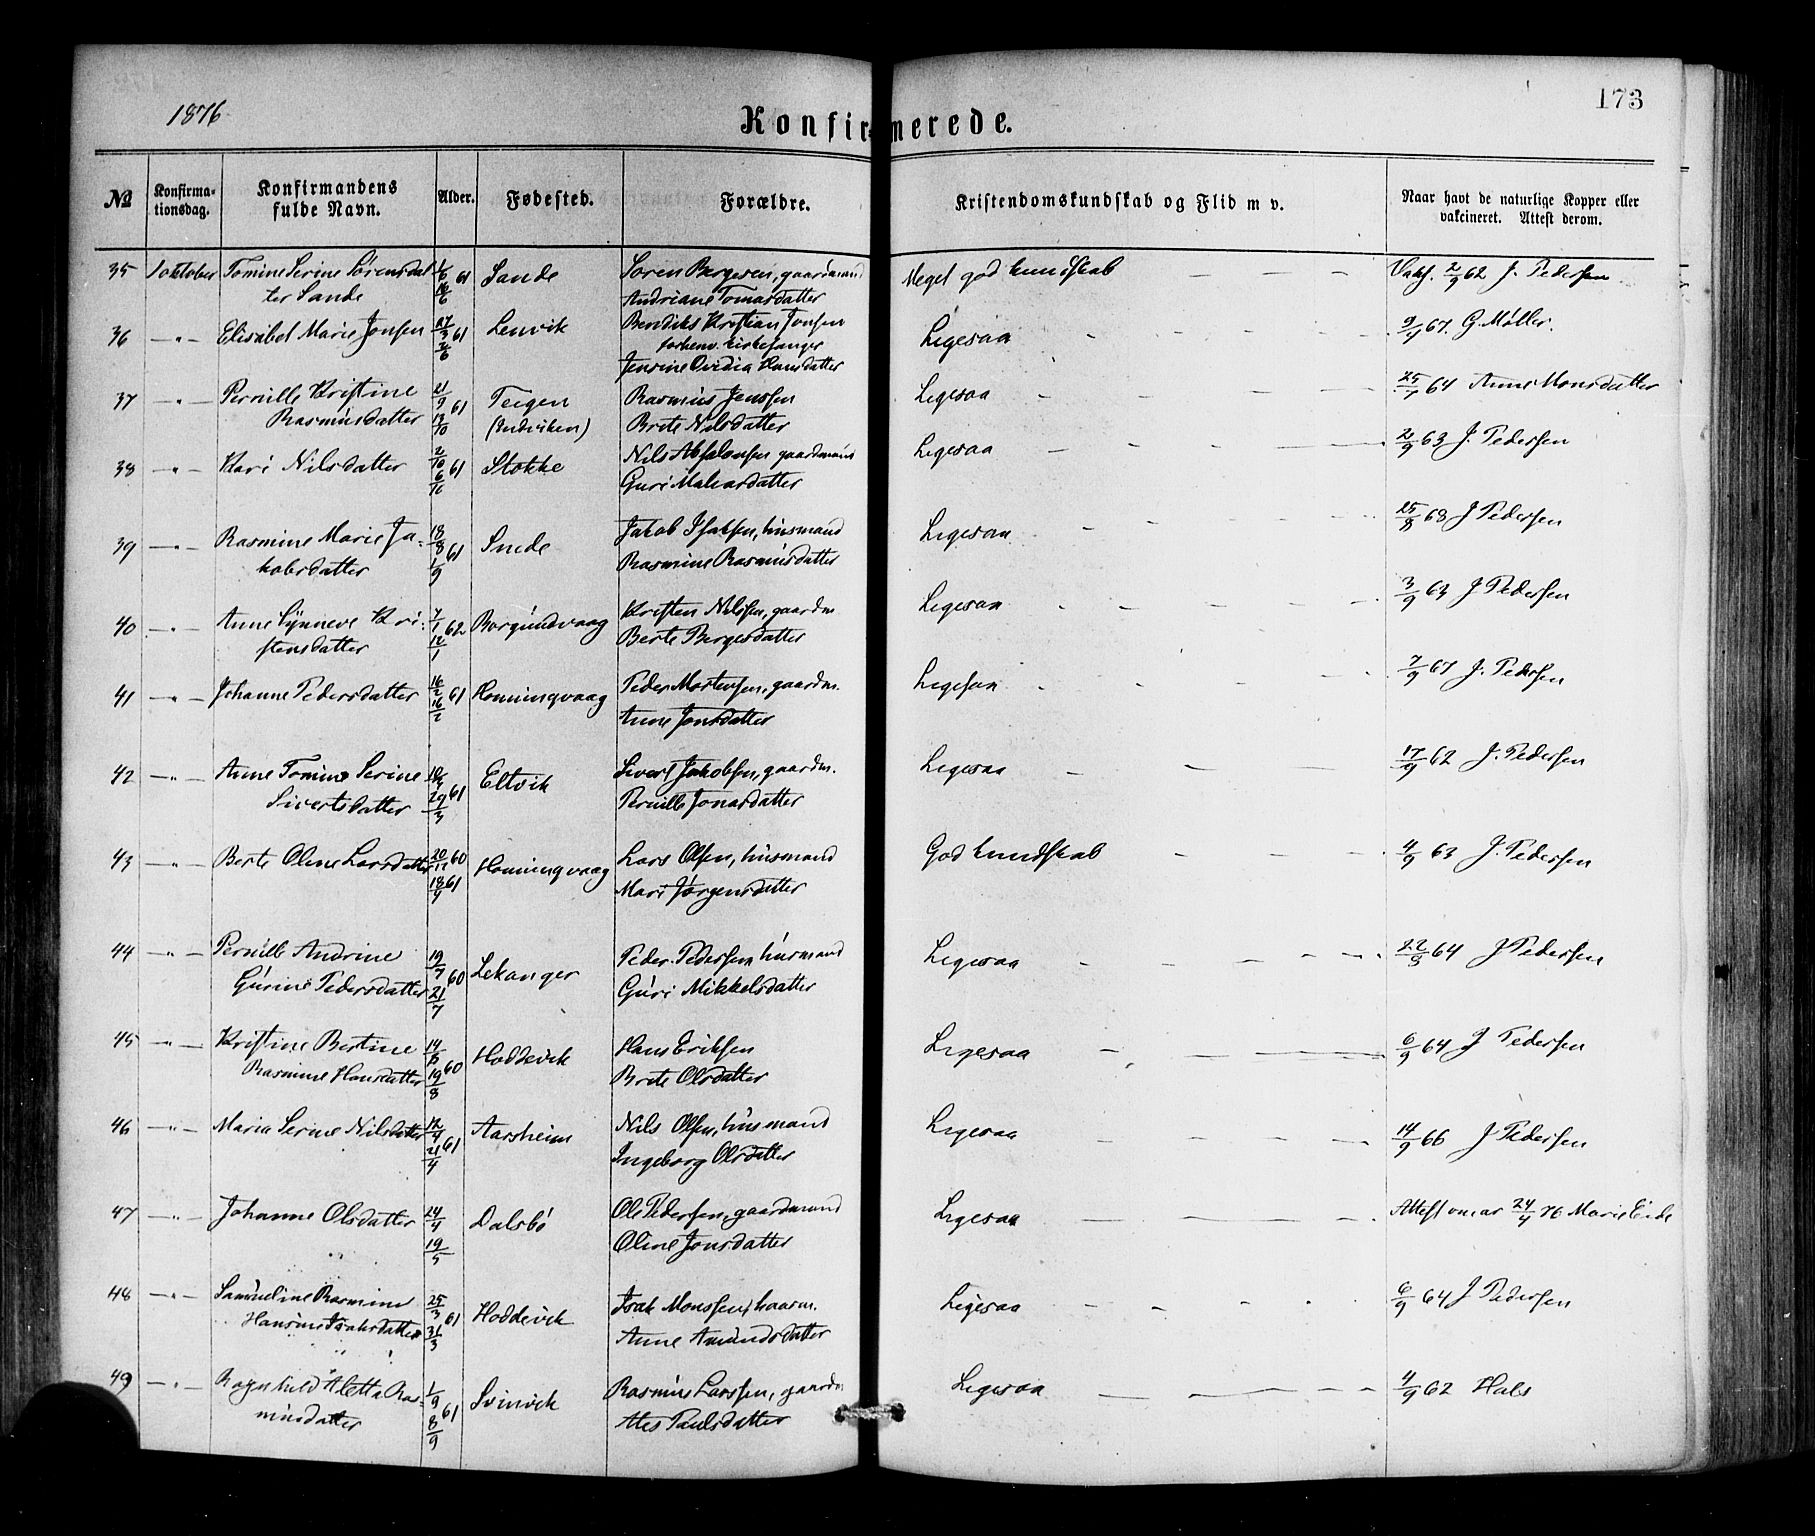 1876
Konfirmerede.
173
No
Konfirma-
tionsdag.
Konfirmandens
fulde Navn.
Alder.
Fødested.
Forældre.
Kristendomskundskab og Flid m v.
Naar havt de naturlige Kopper eller
vakcineret. Attest derom.
35 1 oktober Tomine Serine Sörensdat 61 Sande Sören Bergesen, gaardmand Meget god kundskab — — — Vakc. 2/9 62 J. Pedersen
ter Sande Andriane Tomasdatter
36 — " — Elisabet Marie Jonsen 27/3 61 Lenvik Bendiks Kristian Jonsen Ligesaa - - - - 9/9 67. G. Møller.
forhenv. kirkesanger
Jensine Ovidia Hansdatter
37 — " — Pernille Kristine 21/9 61 Teigen Rasmus Jenssen Ligesaa - - - - 64 Anne Monsdatter
Rasmusdatter 13/10 Brite Nilsdatter
38 — " — Kari Nilsdatter 2/10 61 Stokke Nils Absalonsen gaardmand Ligesaa — - — — 2/9 63 J. Pedersen
6/10 Guri
39 — " — Rasmine Marie Ja- 18/8 61 Jakob Isaksen, husmand Ligesaa - - - - 25/8 68 J Pedersen
kobsdatter 1/9 Rasmine Rasmusdatter
40 — " — Anne Synneve Kri- 7/1 62 Borgundvaag Kristen Nilssen, gaardm Ligesaa - - - - 3/9 63 J Pedersen
stensdatter 12/1 Berte Bergesdatter
41 — " — Johanne Pedersdatter 16/2 61 Honningvaag Peder Mortensen, gaardm. Ligesaa - - - - 7/9 67 J. Pedersen
16/2 Anne Jonsdatter
42 — " — Anne Tomine Serine 61 Eltvik Sivert Jakobsen, gaardm. Ligesaa - - - - 17/9 62 J. Pedersen
Sivertsdatter 29/3 Pernille Jonasdatter
43 — " — Berte Oline Larsdatter 20/12 60 Honningvaag Lars Olsen, husmand God kundskab - - - - 4/9 63 J. Pedersen
18/4 61 Mari Jörgensdatter
44 — " — Pernille Andrine 19/7 60 Lekanger Peder Pedersen husmand Ligesaa - - - - 64 J Pedersen
Gurine Pedersdatter 21/7 Guri Mikkelsdatter
45 — " — Kristine Bertine 14/8 60 Hoddevik Hans Eriksen Ligesaa - - - - 6/9 64 J Pedersen
Rasmine Hansdatter 19/8 Brite Olsdatter
46 — " — Maria Serine Nilsdatter 12/4 61 Aarsheim Nils Olsen, husmand Ligesaa - - - - 14/9 66 J Pedersen
21/4 Ingeborg Olsdatter
47 — " — Johanne Olsdatter 24/4 Dalsbö Ole Pedersen, gaardmand Ligesaa - - - - Attest om ar 24/4 76 Marie Eide
19/5 Oline Jonsdatter
48 — " — Samueline Rasmine 25/3 61 Hoddevik Isak Monssen, Ligesaa - - - - 6/9 64 J Pedersen
Hansine Isaksdatter 31/3 Anne Amundsdatter
49 — " — Ragnhild Aletta Ras- 1/9 61 Svinvik Rasmus Larssen, gaardm Ligesaa - - - - 4/9 62 Hals
musdatter 8/9 Ales Paulsdatter